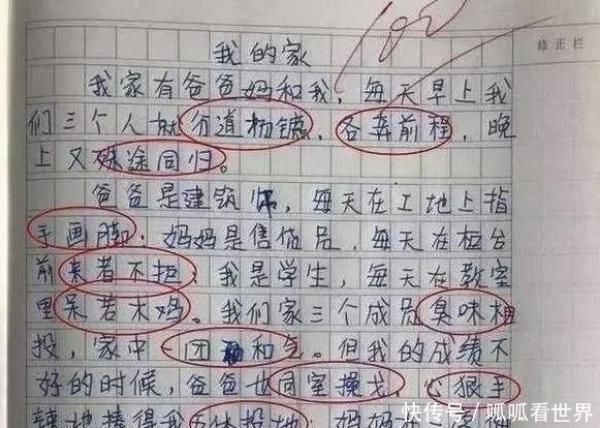 100
修正栏
我的家
我家有爸爸妈和我，每天早上我
们三个人就分道扬镳，各奔前程，晚
上又殊途同归。
爸爸是建筑师，每天在工地上指
手画脚；妈妈是售货员，每天在柜台
前来者不拒；我是学生，每天在教室
里呆若木鸡。我们家三个成员臭味相
投，家中团和气。但我的成绩不
好的时候，爸爸也同室操戈，心狠手
辣地揍得我五体投地
快传号／呱呱看世界